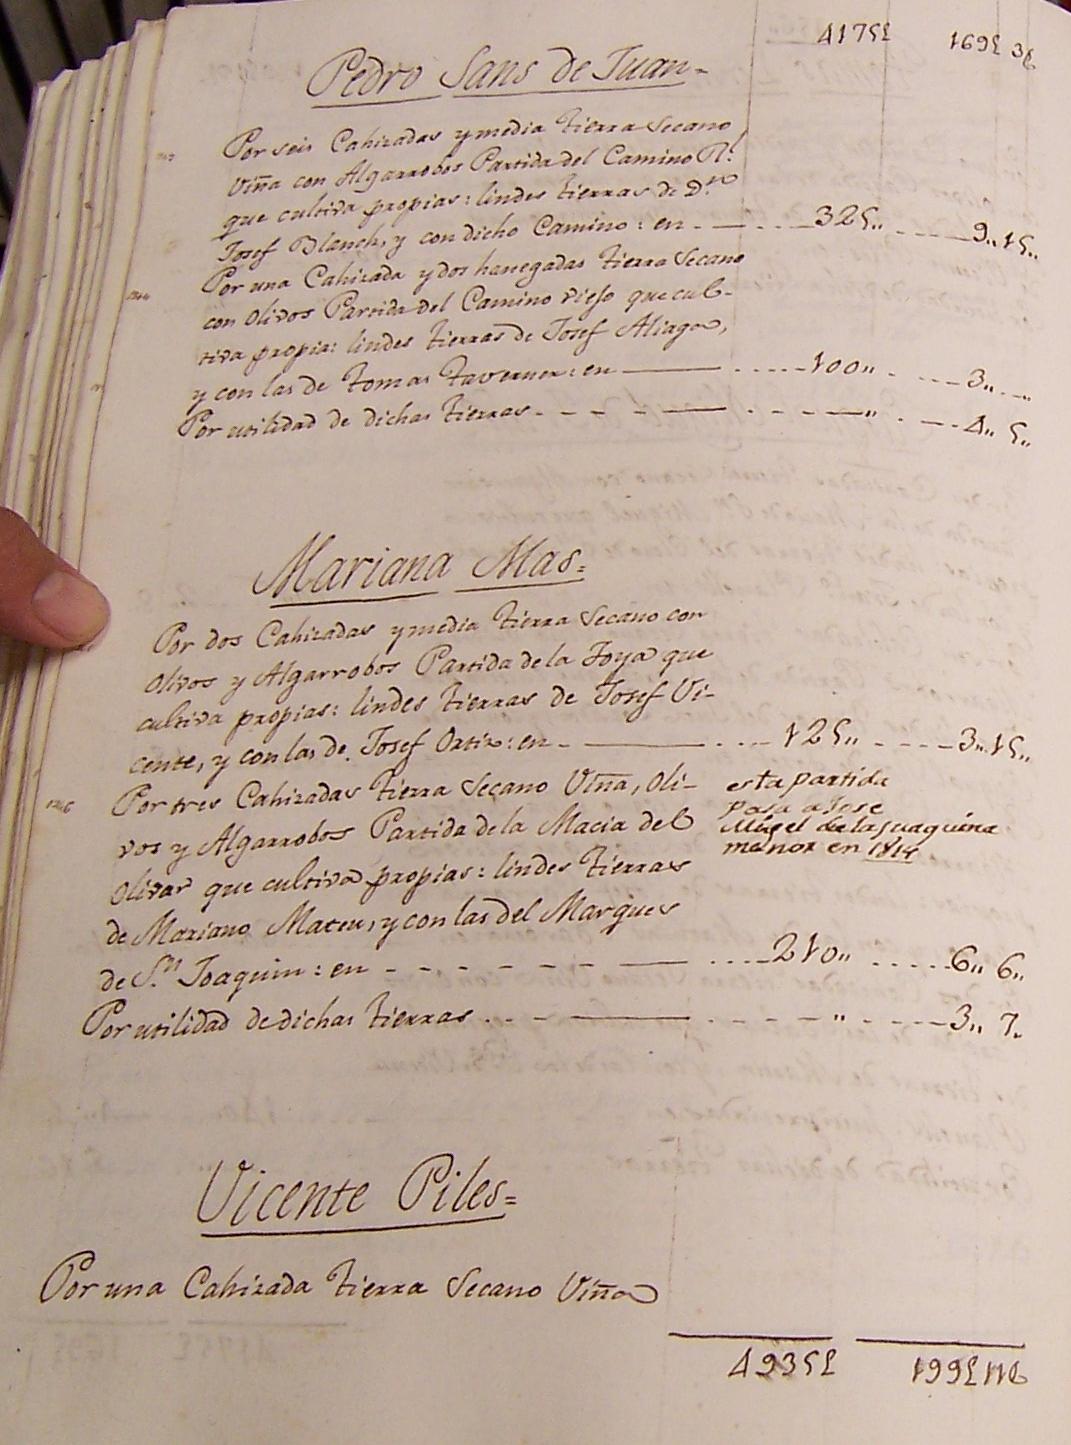 4175£ 169£ 3
Pedro Sans de Juan-
Por seis Cahizadas y media tierra Secano
Viña con Algarrobos Partida del Camino Rl.
que cultiva propias: lindes tierras de Dn.
Josef Blanch, y con dicho Camino: en 325,, 9,,15,,
Por una Cahizada y dos hanegadas tierra Secano
con Olivos Partida del Camino viejo que cul-
tiva propia: lindes tierras de Josef Aliaga,
y con las de Tomas Taverner: en 100,, 3,, ,,
Por utilidad de dichas tierras ,, 4,, 5,,
Mariana Mas=
Por dos Cahizadas y media tierra Secano con
Olivos y Algarrobos Partida de la Foya que
cultiva propias: lindes tierras de Josef Vi-
cente, y con las de Josef Ortiz: en 125,, 3,,15,,
Por tres Cahizadas tierra Secano Viña, Oli-
vos y Algarrobos Partida de la Macia del
Olivar que cultiva propias: lindes tierras
de Mariano Mateu, y con las del Marques
de Sn. Joaquin: en 210,, 6,, 6,,
esta partida
pasa a Jose
Migel de la Juaquina
menor en 1814
Por utilidad de dichas tierras ,, 3,, 7,,
Vicente Piles=
Por una Cahizada tierra Secano Viña
4935£ 199£11